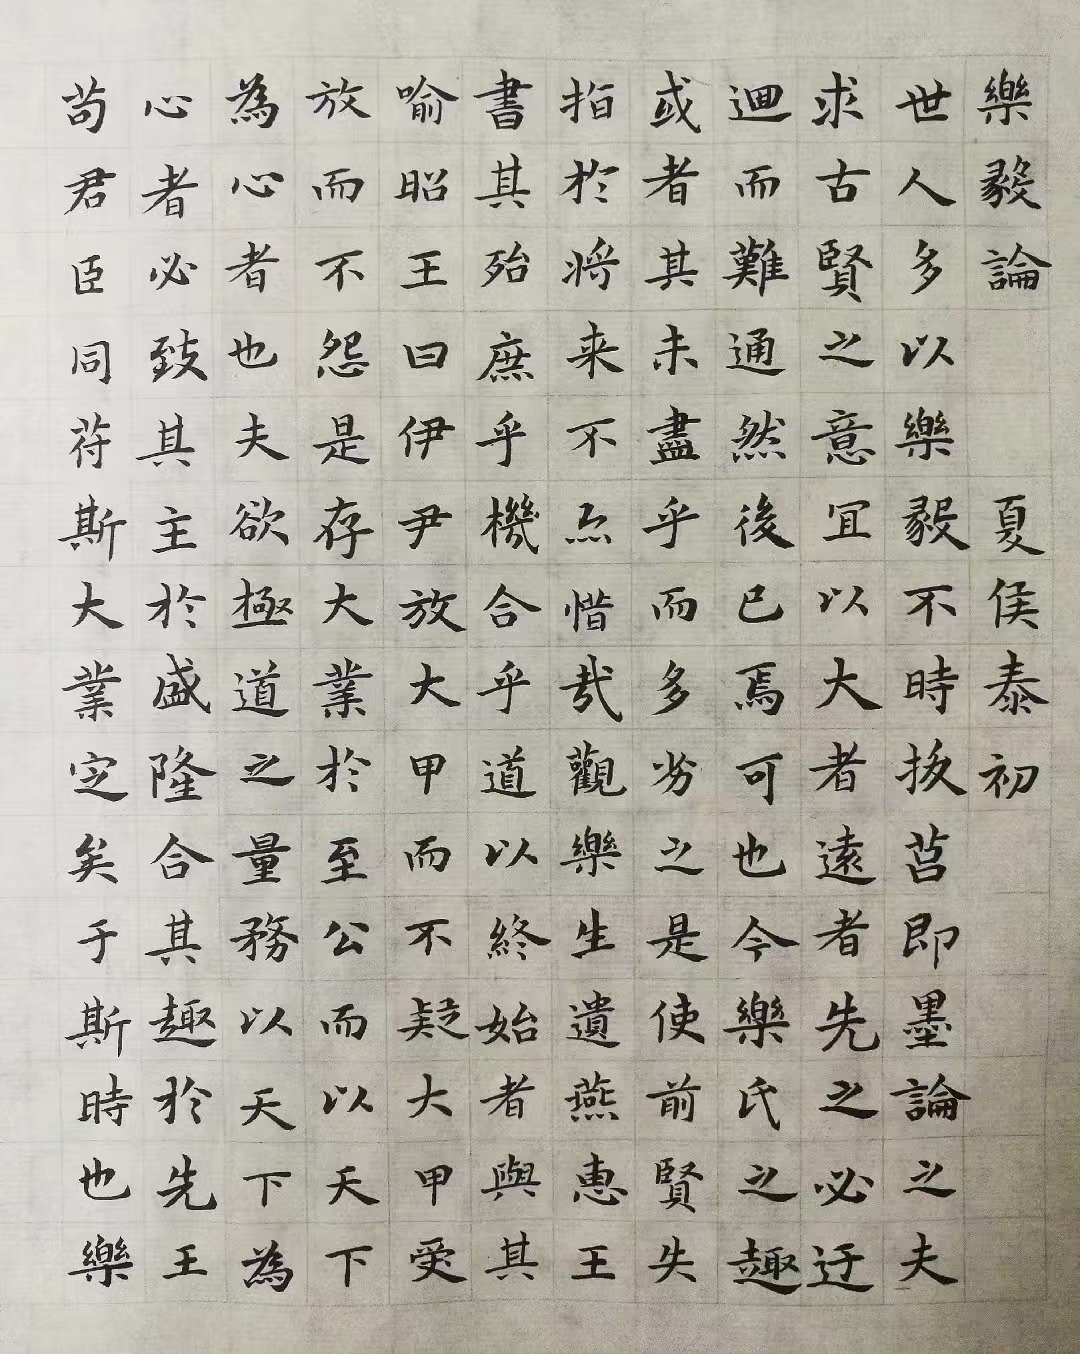 樂毅論 夏侯泰初
世人多以樂毅不時拔莒即墨論之夫
求古賢之意宜以大者遠者先之必迂
迴而難通然後已焉可也今樂氏之趣
或者其未盡乎而多劣之是使前賢失
指於將来不亦惜哉觀樂生遺燕惠王
書其殆庶乎機合乎道以終始者與其
喻昭王曰伊尹放大甲而不疑大甲受
放而不怨是存大業於至公而以天下
為心者也夫欲極道之量務以天下為
心者必致其主於盛隆合其趣於先王
苟君臣同符斯大業定矣于斯時也樂